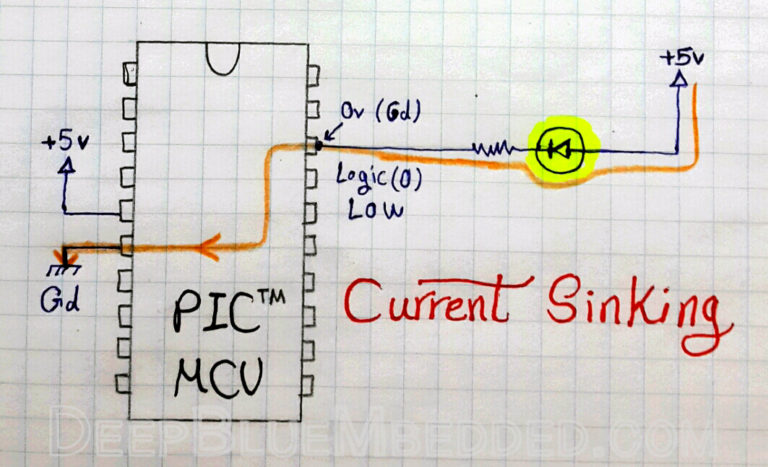 +5v
0v (Gd)
+5v
Logic(0)
LOW
Gd
PIC™
MCU
Current Sinking
DEEPBLUEMBEDDED.COM